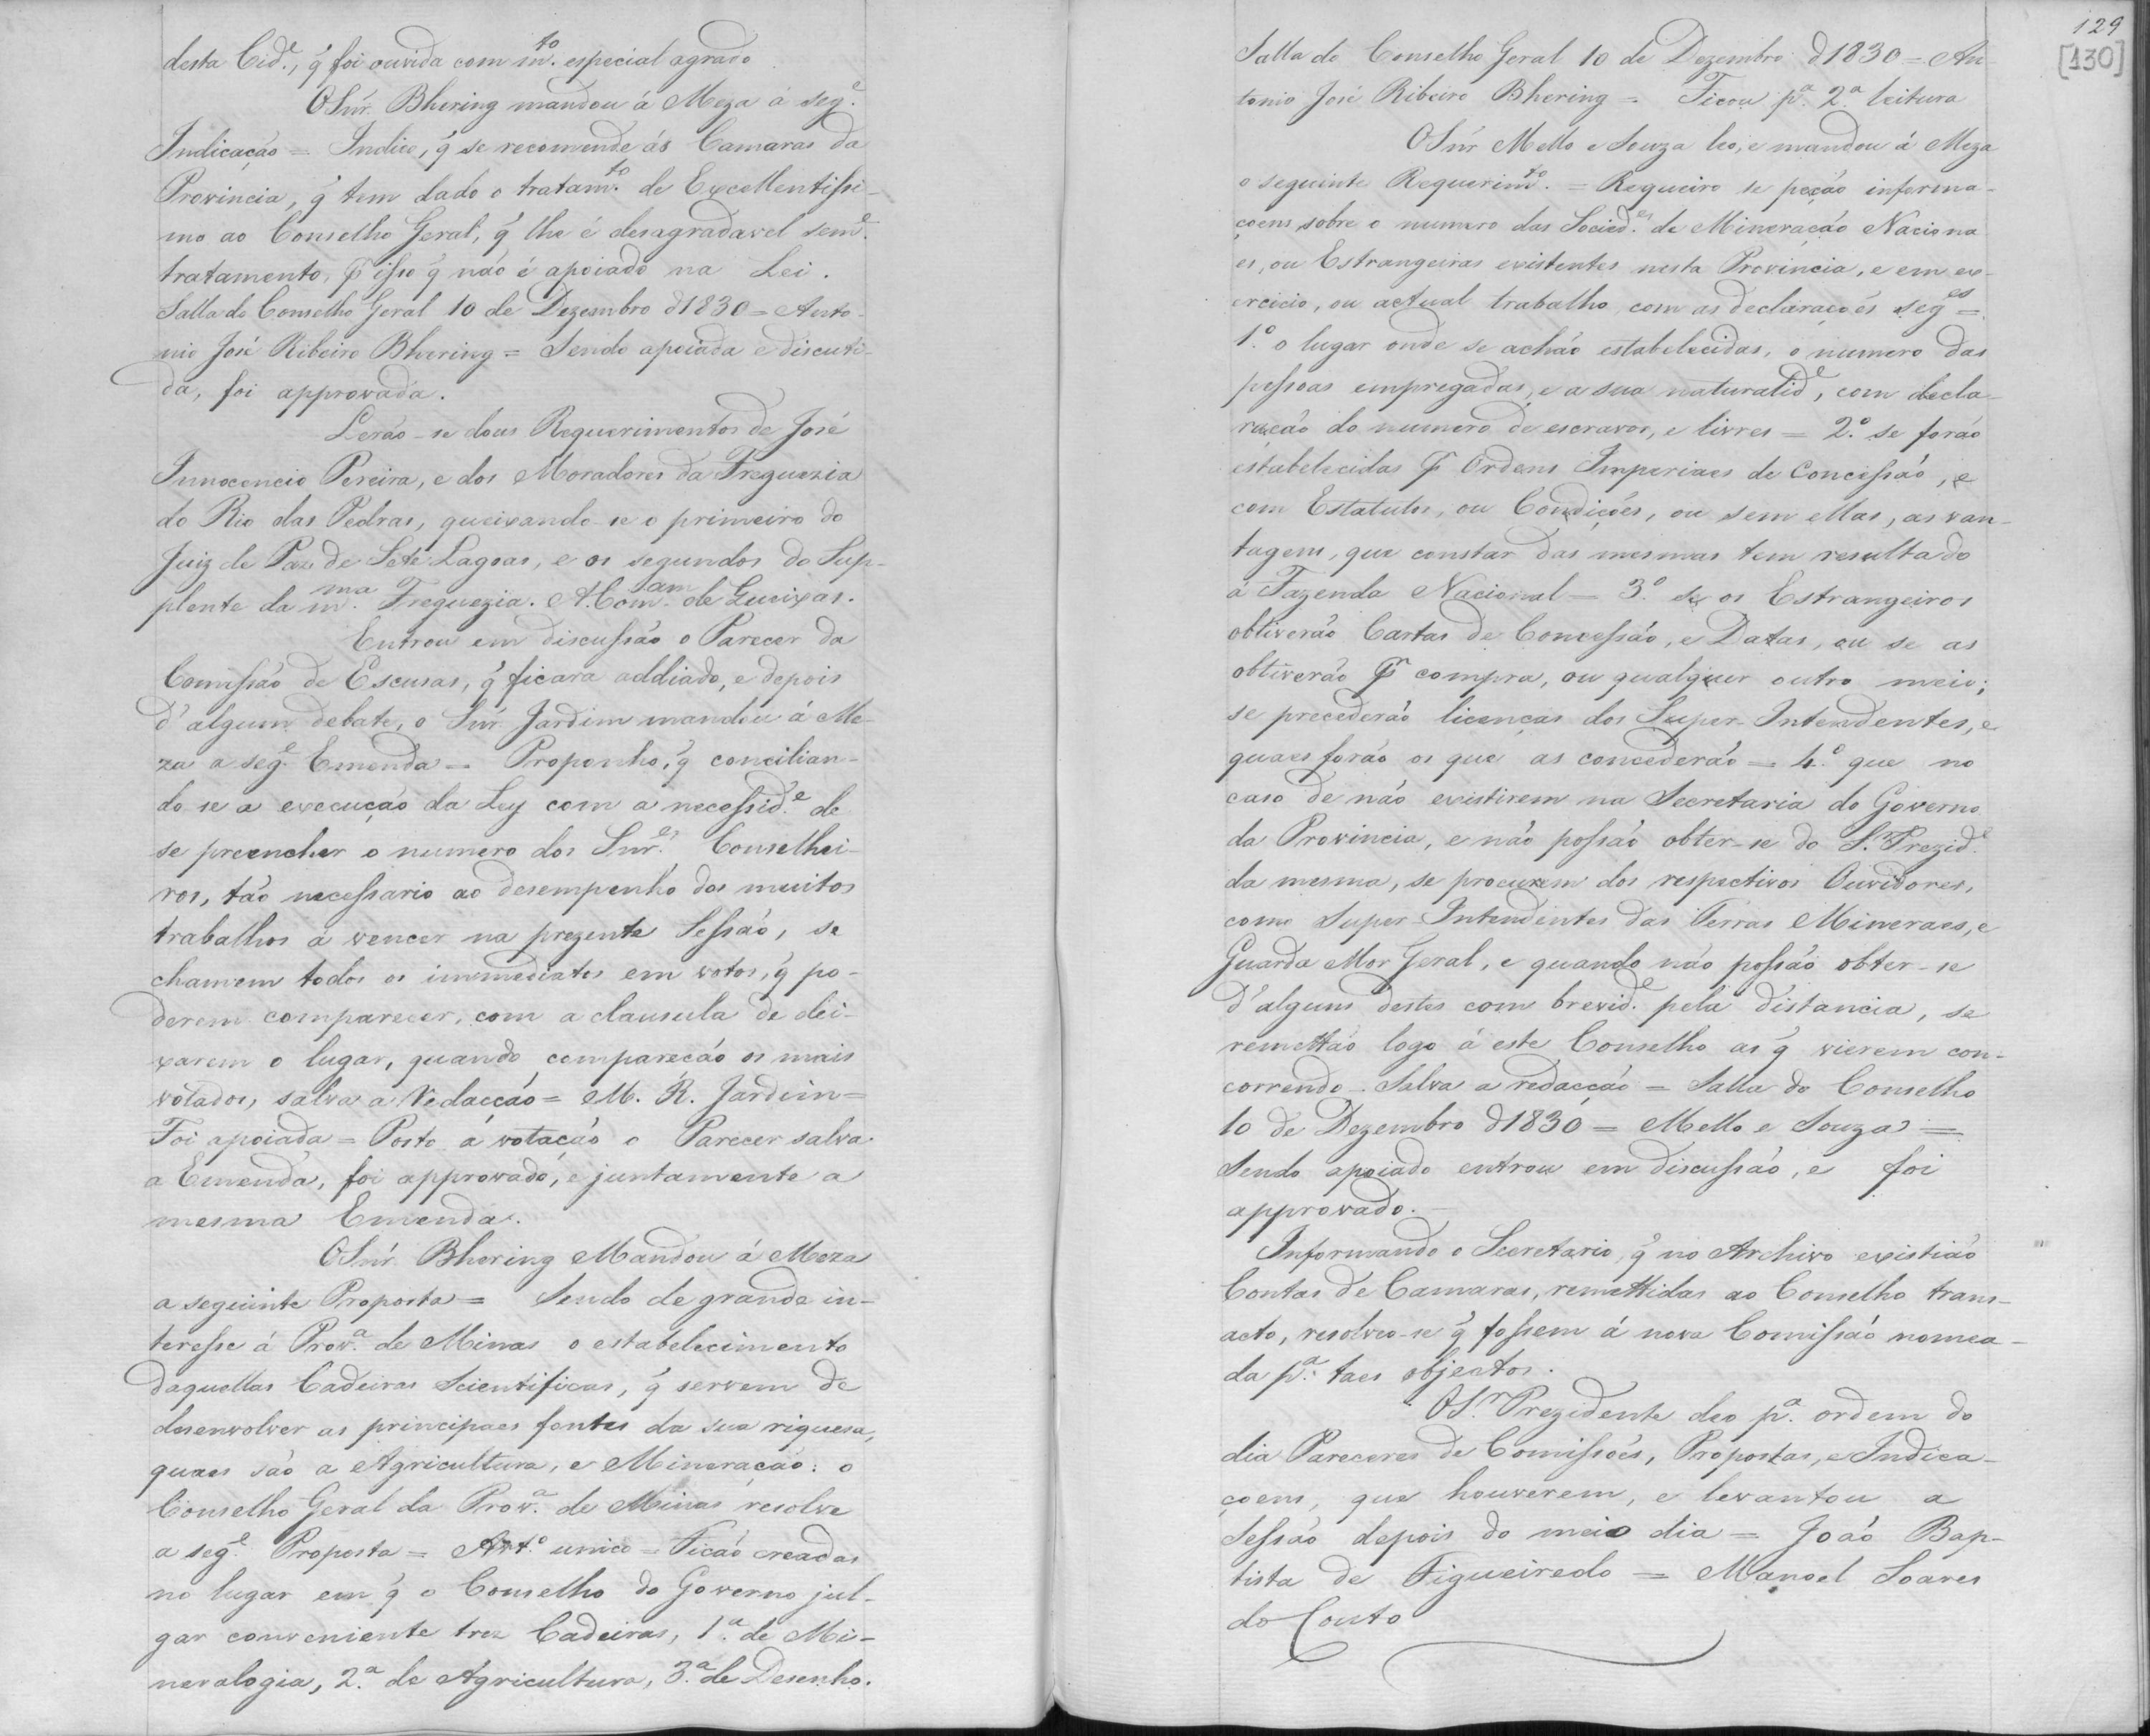 desta Cid.e, q̃ foi ouvida com m.to especial agrado
O Snr. Bhering mandou á Meza á seg.e
Indicação = Indico, q̃ se recomende ás Camaras da
Provincia, q̃ tem dado o tratam.to de Excellentissi-
mo ao Conselho Geral, q̃ lhe é desagradavel sem.e
tratamento, p.r isso q̃ não é apoiado na Lei.
Salla do Conselho Geral 10 de Dezembro d'1830 = Anto-
nio José Ribeiro Bhering = Sendo apoiada e discuti-
da, foi approvada.
Lerão-se dous Requerimentos de José
Innocencio Pereira, e dos Moradores da Freguezia
do Rio das Pedras, queixando-se o primeiro do
Juiz de Paz de Sete Lagoas, e os segundos do Sup-
plente da m.ma Freguezia. A' Com.am de Queixas.
Entrou em discussão o Parecer da
Comissão de Escusas, q̃ ficara addiado, e depois
d'algum debate, o Snr. Jardim mandou á Me-
za a seg.e Emenda = Proponho, q̃ concilian-
do se a execução da Ley com a necessid.e de
se preencher o numero dos Snr.es Conselhei-
ros, tão necessario ao desempenho dos muitos
trabalhos á vencer na prezente Sessão, se
chamem todos os immediatos em votos, q̃ po-
derem comparecer, com a clausula de dei-
xarem o lugar, quando compareção os mais
votados, salva a Redacção = M. R. Jardim =
Foi apoiada = Posto á votação o Parecer salva
a Emenda, foi approvado, e juntamente a
mesma Emenda.
O Snr. Bhering Mandou á Meza
a seguinte Proposta = Sendo de grande in-
teresse á Prov.a de Minas o estabelecimento
daquellas Cadeiras Scientificas, q̃ servem de
desenvolver as principaes fontes da sua riquesa,
quaes são a Agricultura, e Mineração: o
Conselho Geral da Prov.a de Minas resolve
a seg.e Proposta = Art.o unico = Ficão creadas
no lugar em q̃ o Conselho do Governo jul-
gar conveniente trez Cadeiras, 1.a de Mi-
neralogia, 2.a de Agricultura, 3.a de Desenho.
129
[130]
Salla do Conselho Geral 10 de Dezembro d'1830 = An
tonio José Ribeiro Bhering = Ficou p.a 2.a leitura
O Snr Mello e Souza leo, e mandou á Meza
o seguinte Requerim.to = Requeiro se peção informa-
çoens sobre o numero das Socied.es de Mineração Naciona
es, ou Estrangeiras existentes nesta Provincia, e em ex-
ercicio, ou actual trabalho, com as declarações seg.es =
1.o o lugar onde se achão estabelecidas, o numero das
pessoas empregadas, e a sua naturalid.e, com decla-
ração do numero de escravos, e livres = 2.o se forão
estabelecidas p.r Ordens Imperiaes de Concessão, e
com Estatutos, ou Condições, ou sem ellas, as van-
tagens, que constar das mesmas tem resultado
á Fazenda Nacional = 3.o se os Estrangeiros
obtiverão Cartas de Concessão, e Datas, ou se as
obtiverão p.r compra, ou qualquer outro meio;
se precederão licenças dos Super-Intendentes, e
quaes forão os que as concederão = 4.o que no
caso de não existirem na Secretaria do Governo
da Provincia, e não possão obter-se do S.r Prezid.e
da mesma, se procurem dos respectivos Ouvidores,
como Super Intendentes das Terras Mineraes, e
Guarda Mor Geral, e quando não possão obter-se
d'alguns destes com brevid.e pela distancia, se
remettão logo á este Conselho as q̃ vierem con-
correndo. Salva a redacção = Salla do Conselho
10 de Dezembro d'1830 = Mello e Souza =
Sendo apoiado entrou em discussão, e foi
approvado.
Informando o Secretario, q̃ no Archivo existião
Contas de Camaras, remettidas ao Conselho trans-
acto, resolveo-se q̃ fossem á nova Comissão nomea-
da p.a taes objectos.
O S.r Prezidente deo p.a ordem do
dia Pareceres de Comissões, Propostas, e Indica-
çoens, que houverem, e levantou a
Sessão depois do meio dia = João Bap-
tista de Figueiredo = Manoel Soares
do Couto